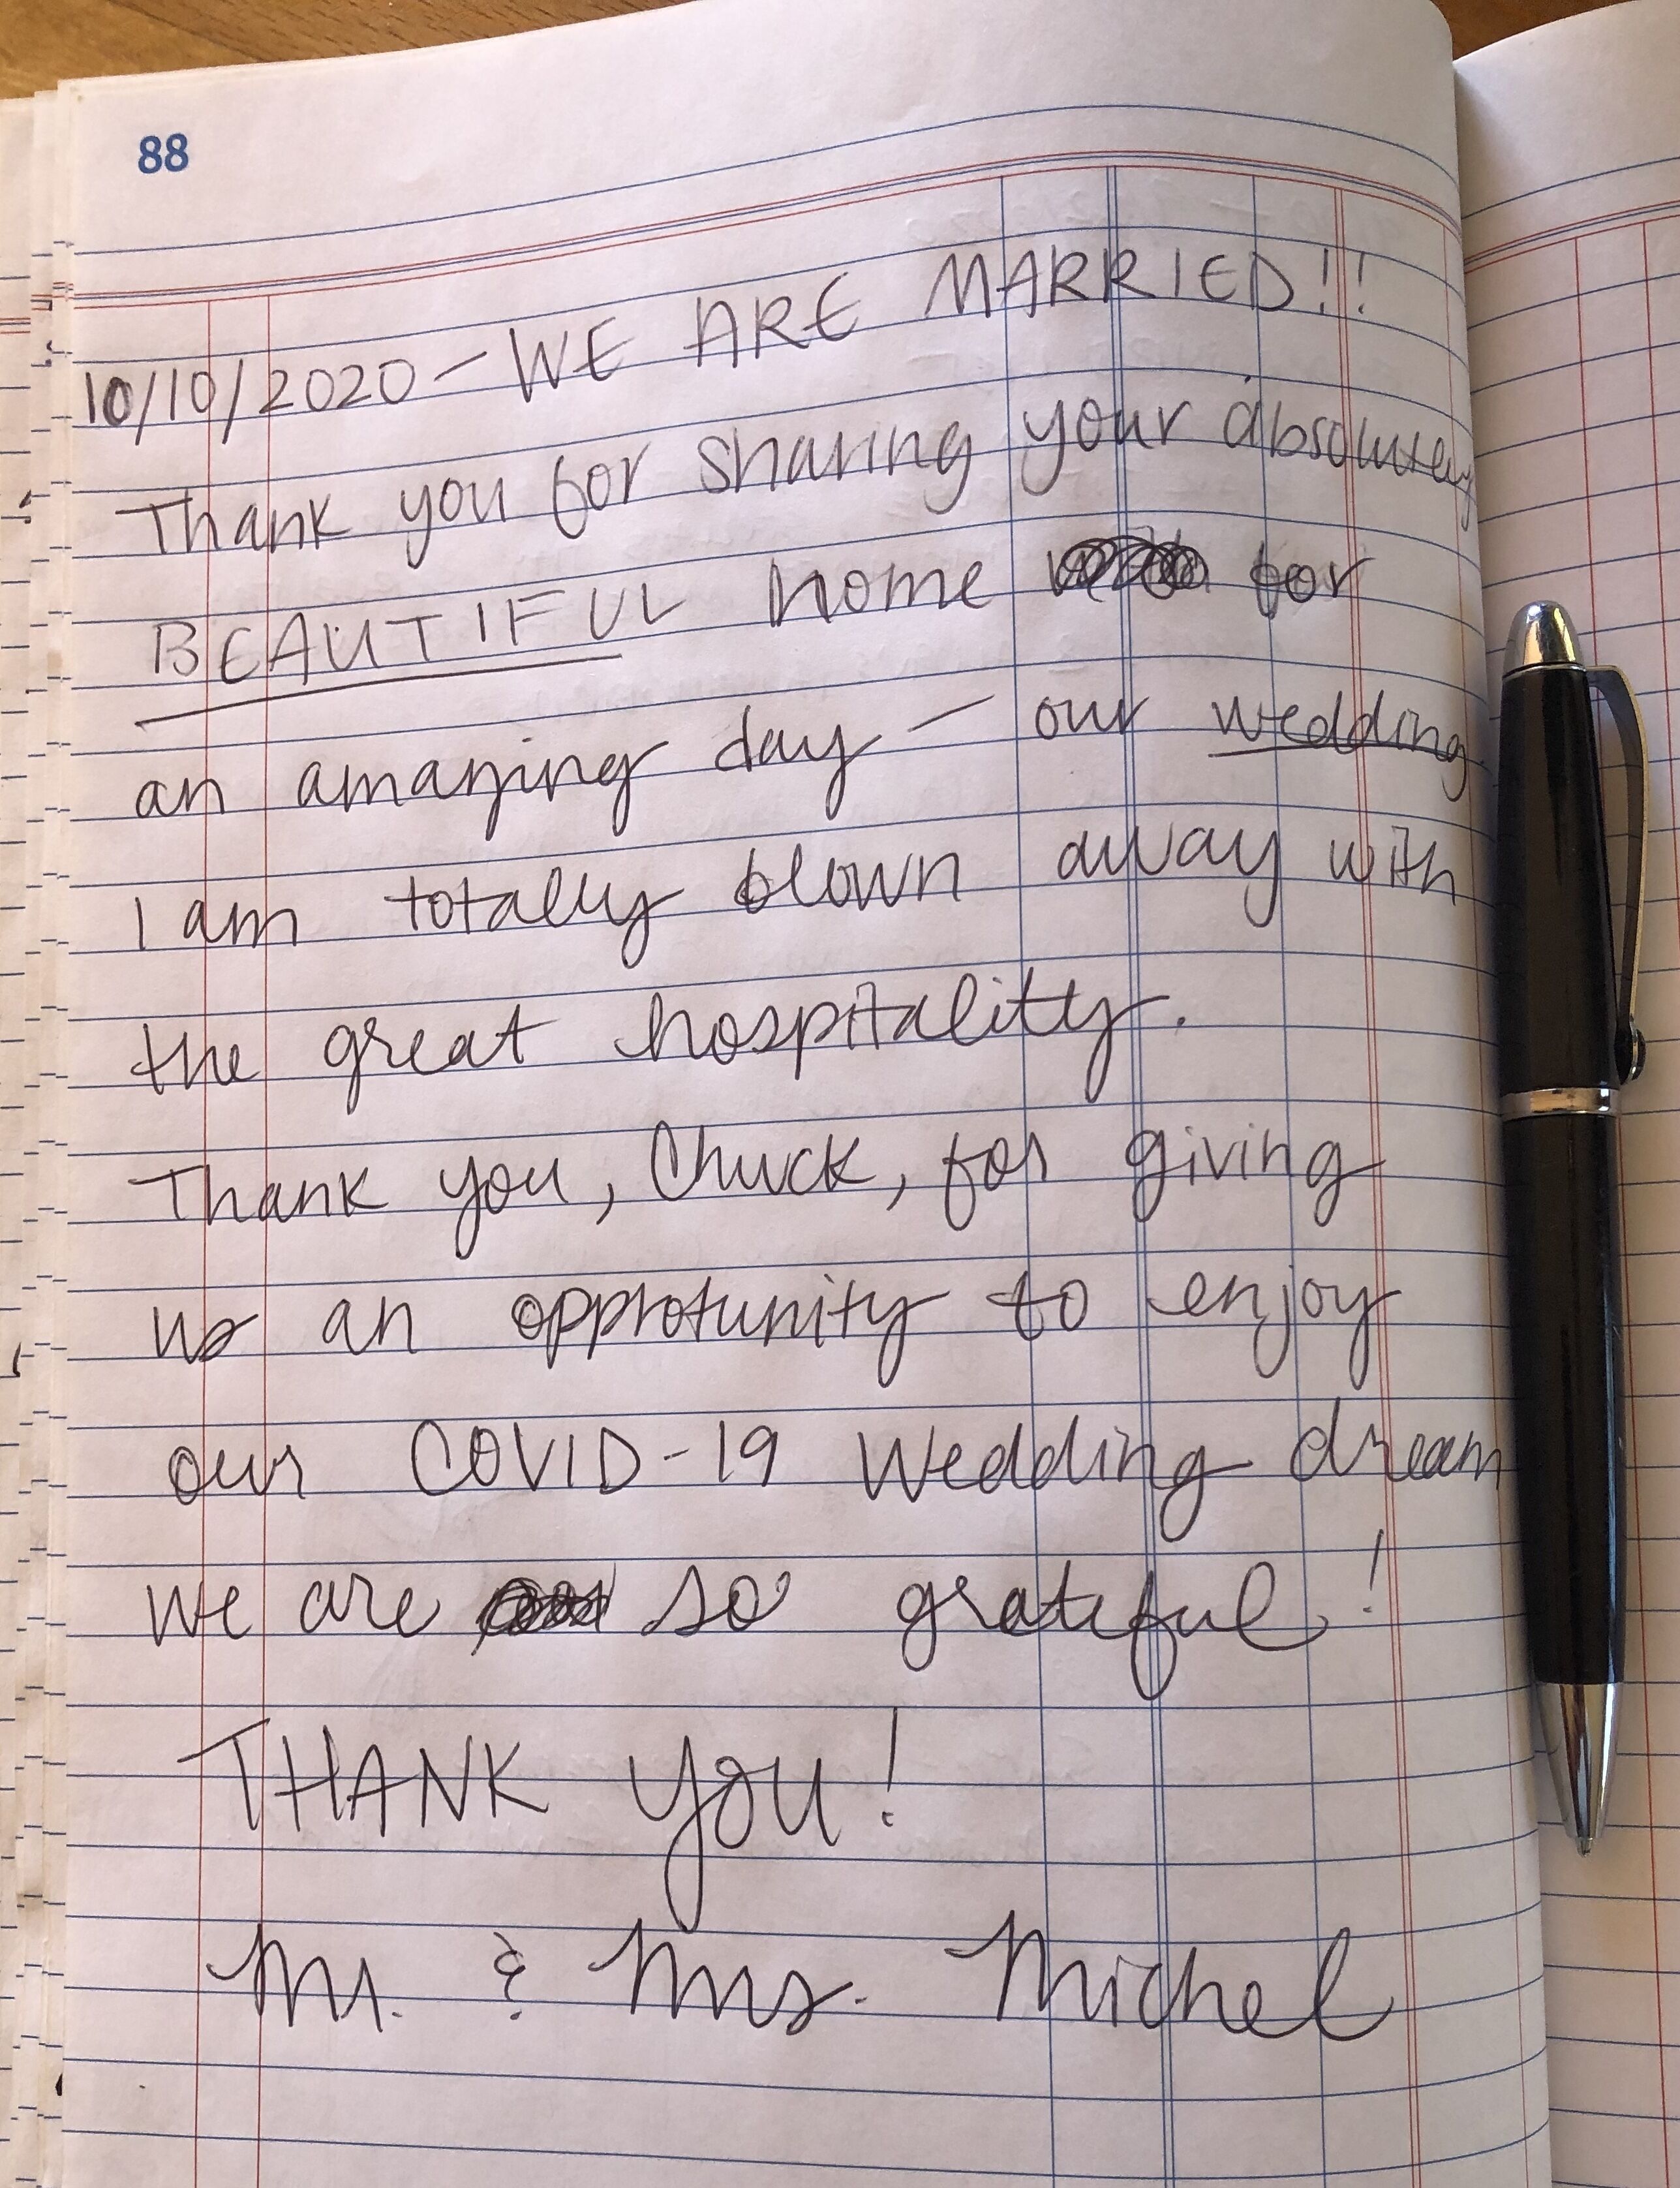 88
10/10/2020 - WE ARE MARRIED!!
Thank you for sharing your absolutely
BEAUTIFUL home for
an amazing day - our wedding
I am totally blown away with
the great hospitality.
Thank you, Chuck, for giving
us an opprotunity to enjoy
our COVID-19 Wedding dream
We are so grateful!
THANK YOU!
Mr. & Mrs. Michel